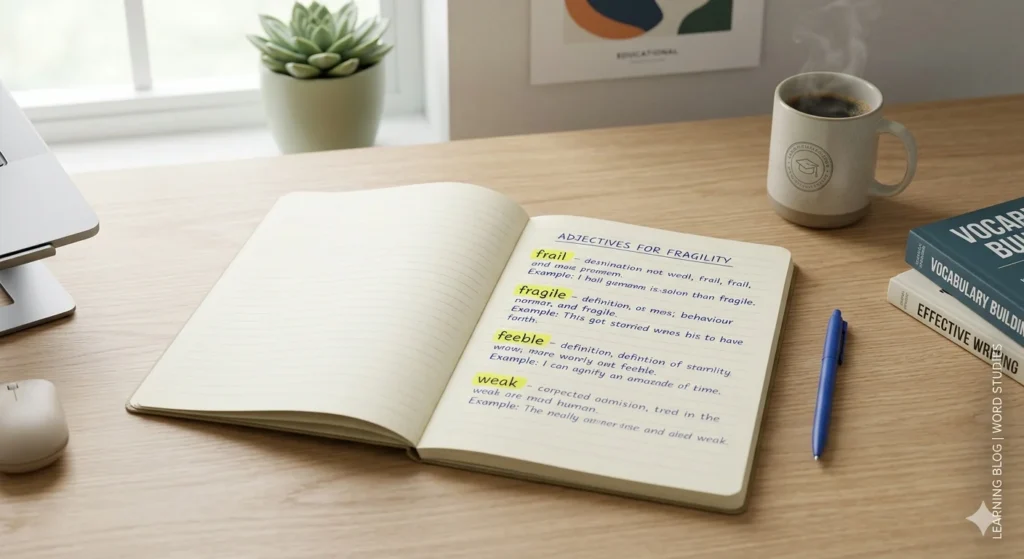 EDUCATIONAL
ADJECTIVES FOR FRAGILITY
frail – desnination not wedl, frail, frail,
and mase premem.
Example: I hall gumamm is-solon than fragile.
fragile – definition, or mes; behaviour
normar, and fragile.
Example: This got storried wnes his to have
forith.
feeble – definition, defintion of starnlity
wrow; mare worrly ant feeble.
Example: I can agnify an amaende of time.
weak – corpected aamision, tred in the
weak are mad human.
Example: The neally and aled weak.
VOCAB
BUI
VOCABULARY BUILDIN
EFFECTIVE WRITING
LEARNING BLOG | WORD STUDIES